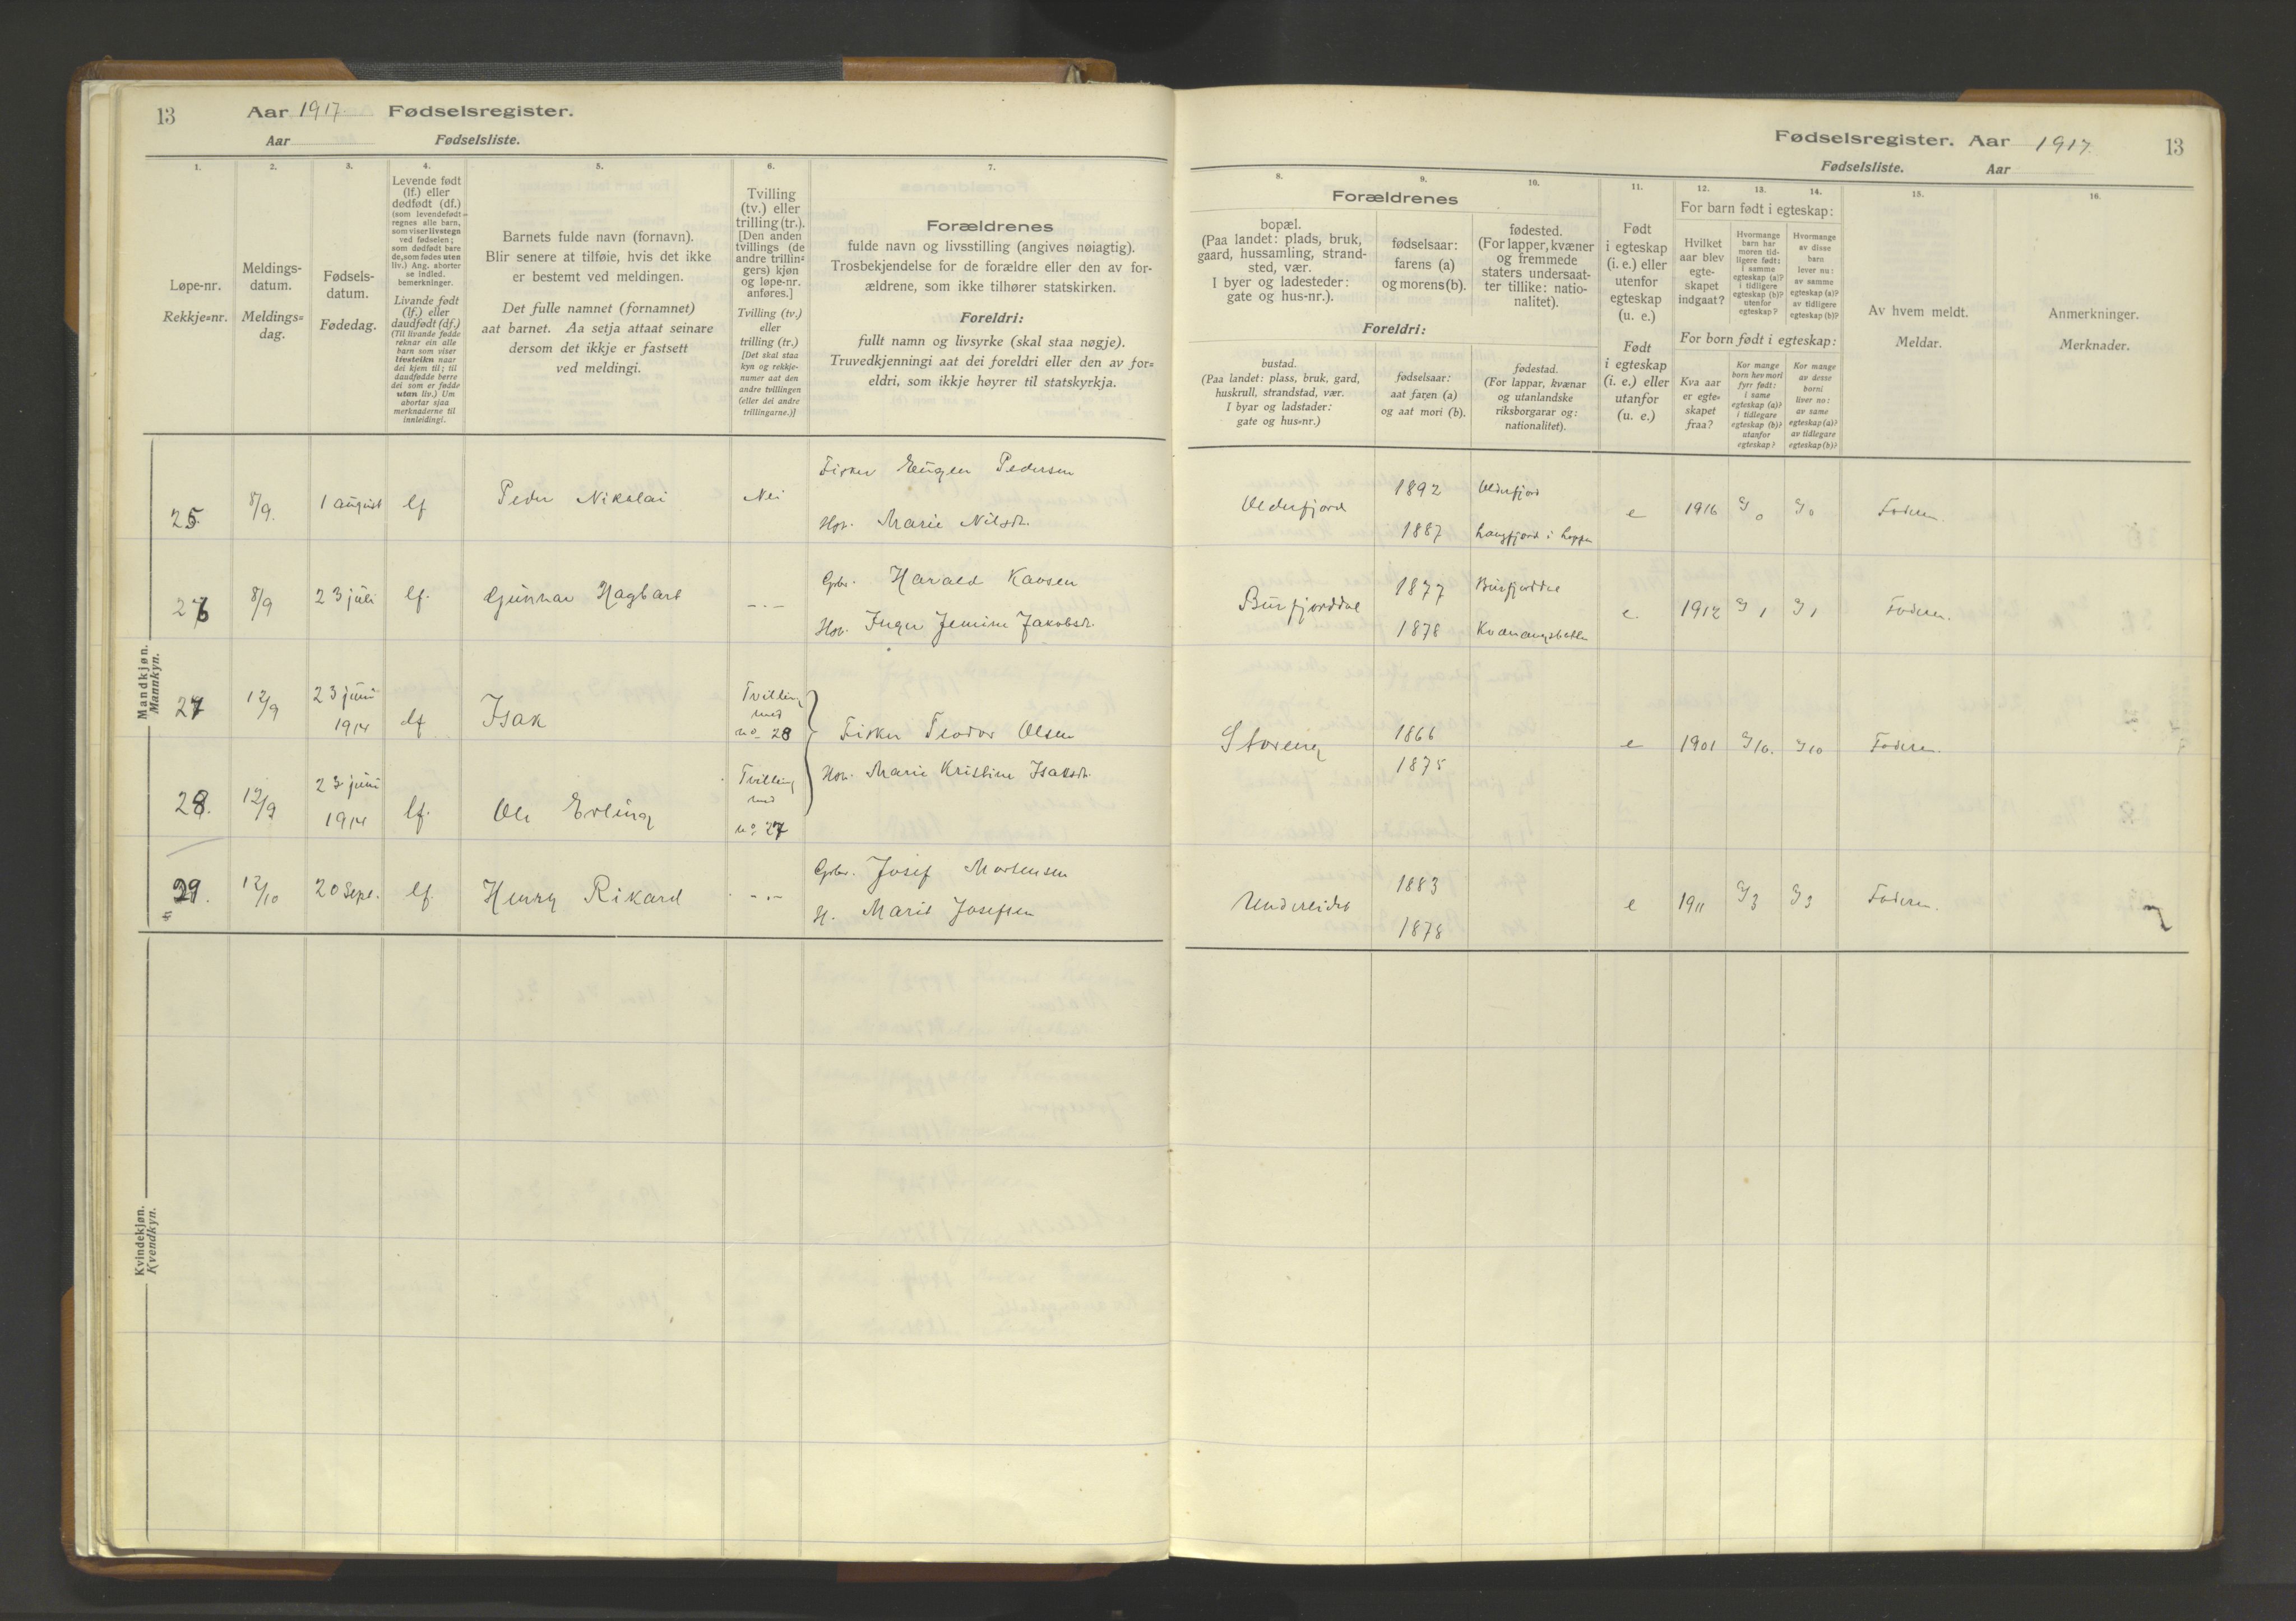 13
Aar 1917. Fødselsregister.
Aar Fødselsliste.
Fødselsregister. Aar 1917. 13
Fødselsliste. Aar
1. 2. 3. 4. 5. 6. 7.
Løpe-nr.
Rekkje-nr.
Meldings-
datum.
Meldings-
dag.
Fødsels-
datum.
Fødedag.
Levende født
(lf.) eller
dødfødt (df.)
(som levendefødt
regnes alle barn,
som viser livstegn
ved fødselen;
som dødfødt bare
de, som fødes uten
liv.) Ang. aborter
se indled.
bemerkninger.
Livande født
(lf.) eller
daudfødt (df.)
(Til livande fødde
reknar ein alle
barn som viser
livsteikn naar
dei kjem til; til
daudfødde berre
dei som er fødde
utan liv.) Um
abortar sjaa
merknaderne til
innleidingi.
Barnets fulde navn (fornavn).
Blir senere at tilføie, hvis det ikke
er bestemt ved meldingen.
Det fulle namnet (fornamnet)
aat barnet. Aa setja attaat seinare
dersom det ikkje er fastsett
ved meldingi.
Tvilling
(tv.) eller
trilling (tr.).
[Den anden
tvillings (de
andre trillin-
gers) kjøn
og løpe-nr.
anføres.]
Tvilling (tv.)
eller
trilling (tr.)
[Det skal staa
kyn og rekkje-
numer aat den
andre tvillingen
(eller dei andre
trillingarne.)]
Forældrenes
fulde navn og livsstilling (angives nøiagtig).
Trosbekjendelse for de forældre eller den av for-
ældrene, som ikke tilhører statskirken.
Foreldri:
fullt namn og livsyrke (skal staa nøgje).
Truvedkjenningi aat dei foreldri eller den av for-
eldri, som ikkje høyrer til statskyrkja.
8. 9. 10. 11. 12. 13. 14. 15. 16.
Forældrenes
bopæl.
(Paa landet: plads, bruk,
gaard, hussamling, strand-
sted, vær.
I byer og ladesteder:
gate og hus-nr.).
fødselsaar:
farens (a)
og morens (b).
fødested.
(For lapper, kvæner
og fremmede
staters undersaat-
ter tillike: natio-
nalitet).
Foreldri:
bustad.
(Paa landet: plass, bruk, gard,
huskrull, strandstad, vær.
I byar og ladstader:
gate og hus-nr.)
fødselsaar:
aat faren (a)
og aat mori (b).
fødestad.
(For lappar, kvænar
og utanlandske
riksborgarar og:
nationalitet).
Født
i egteskap
(i. e.) eller
utenfor
egteskap
(u. e.)
Født
i egteskap
(i. e.) eller
utanfor
(u. e.)
For barn født i egteskap:
Hvilket
aar blev
egte-
skapet
indgaat?
Hvormange
barn har
moren tid-
ligere født:
i samme
egteskap (a)?
i tidligere
egteskap (b)?
utenfor
egteskap?
Hvormange
av disse
barn
lever nu:
av samme
egteskap (a)?
av tidligere
egteskap (b)?
For born født i egteskap:
Kva aar
er egte-
skapet
fraa?
Kor mange
born hev mori
fyrr født:
i same
egteskap (a)?
i tidlegare
egteskap (b)?
utanfor
egteskap?
Kor mange
av desse
borni
liver no:
av same
egteskap (a)?
av tidlegare
egteskap (b)?
Av hvem meldt.
Meldar.
Anmerkninger.
Merknader.
Mandkjøn.
Mannkyn.
25. 8/9. 1 august lf Peder Nikolai Nei Fisker Eugen Pedersen
Hstr. Marie Nilsdr.
Olderfjord 1892 Olderfjord e 1916 0 0 Faderen.
1887 Langfjord i Loppen
26 8/9 23 juli lf. Gunnar Hagbart -.- Gbr. Harald Kaosen
Hstr. Inger Jemine Jakobsdr.
Burfjorddal 1877 Burfjorddal e. 1912 1 1 Faderen.
1878 Kvænangsbotn
27 12/9 23 juni 1914 lf Isak Tvilling med no. 28
Fisker Teodor Olsen
Hstr. Marie Kristine Isaksdr.
Storeng 1866 e 1901 10. 10 Faderen.
1875
28. 12/9 23 juni 1914 lf. Ole Erling Tvilling med no. 27
29. 12/10 20 Sept. lf. Henry Rikard -.- Gbr. Josef Mortensen
H. Marit Josefsen
Undereidet 1883 e 1911 3 3 Faderen.
1878
Kvindekjøn.
Kvendkyn.